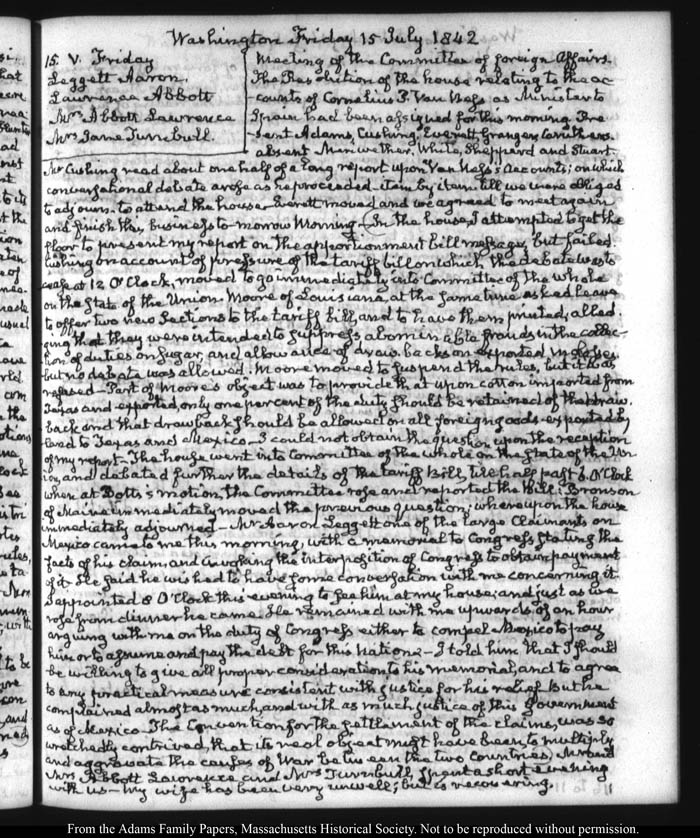 Washington Friday 15 July 1842
15. V. Friday
Leggett Aaron.
Lawrence Abbott
Mrs Abbott Lawrence
Mrs Jane Turnbull.
Meeting of the Committee of foreign Affairs.
The Resolution of the house relating to the ac-
counts of Cornelius P. Van Ness as Minister to
Spain had been assigned for this morning. Pre-
sent Adams, Cushing, Everett Granger Caruthers.
absent Meriwether, White, Sheppard and Stuart.
Mr Cushing read about one half of a long report upon Van Ness's Accounts; on which
conversational debate arose as he proceeded item by item till we were obliged
to adjourn to attend the house. Everett moved and we agreed to meet again
and finish this business to-morrow Morning—In the house, I attempted to get the
floor to present my report on the apportionment bill message, but failed.
Cushing on account of pressure of the tariff bill on which the debate was to
cease at 12 O'Clock, moved to go immediately into Committee of the whole
on the State of the Union. Moore of Louisiana, at the same time asked leave
to offer two new Sections to the tariff bill, and to have them printed, alled-
ging that they were intended to suppress abominable frauds in the collec-
tion of duties on Sugar, and allowance of drawbacks on exported Molasses
but no debate was allowed. Moore moved to suspend the rules, but it was
refused—Part of Moore's object was to provide that upon cotton imported from
Texas and exported, only one per cent of the duty should be retained of the draw-
back and that drawback should be allowed on all foreign goods exported by
land to Texas and Mexico—I could not obtain the question upon the reception
of my report—The house went into Committee of the whole on the State of the Un-
ion, and debated further the details of the tariff Bill, till half past 6. O'Clock
when at Botts's motion, the Committee rose and reported the Bill; Bronson
of Maine immediately moved the previous question; whereupon the house
immediately adjourned—Mr Aaron Leggett one of the large Claimants on
Mexico came to me this morning, with a memorial to Congress stating the
facts of his claim, and invoking the interposition of Congress to obtain payment
of it. He said he wished to have some conversation with me concerning it
I appointed 8 O'Clock this evening to see him at my house; and just as we
rose from dinner he came. He remained with me upwards of an hour
arguing with me on the duty of Congress either to compel Mexico to pay
him or to assume and pay the debt for this Nation—I told him that I should
be willing to give all proper consideration to his memorial, and to agree
to any practical measure consistent with justice for his relief But he
complained almost as much, and with as much justice of this Government
as of Mexico—The Convention for the settlement of the claims, was so
wretchedly contrived, that its real object must have been to multiply
and aggravate the causes of War between the two countries, Mr and
Mrs Abbott Lawrence and Mrs Turnbull, spent a short evening
with us—My wife has been very unwell; but is recovering.
From the Adams Family Papers, Massachusetts Historical Society. Not to be reproduced without permission.